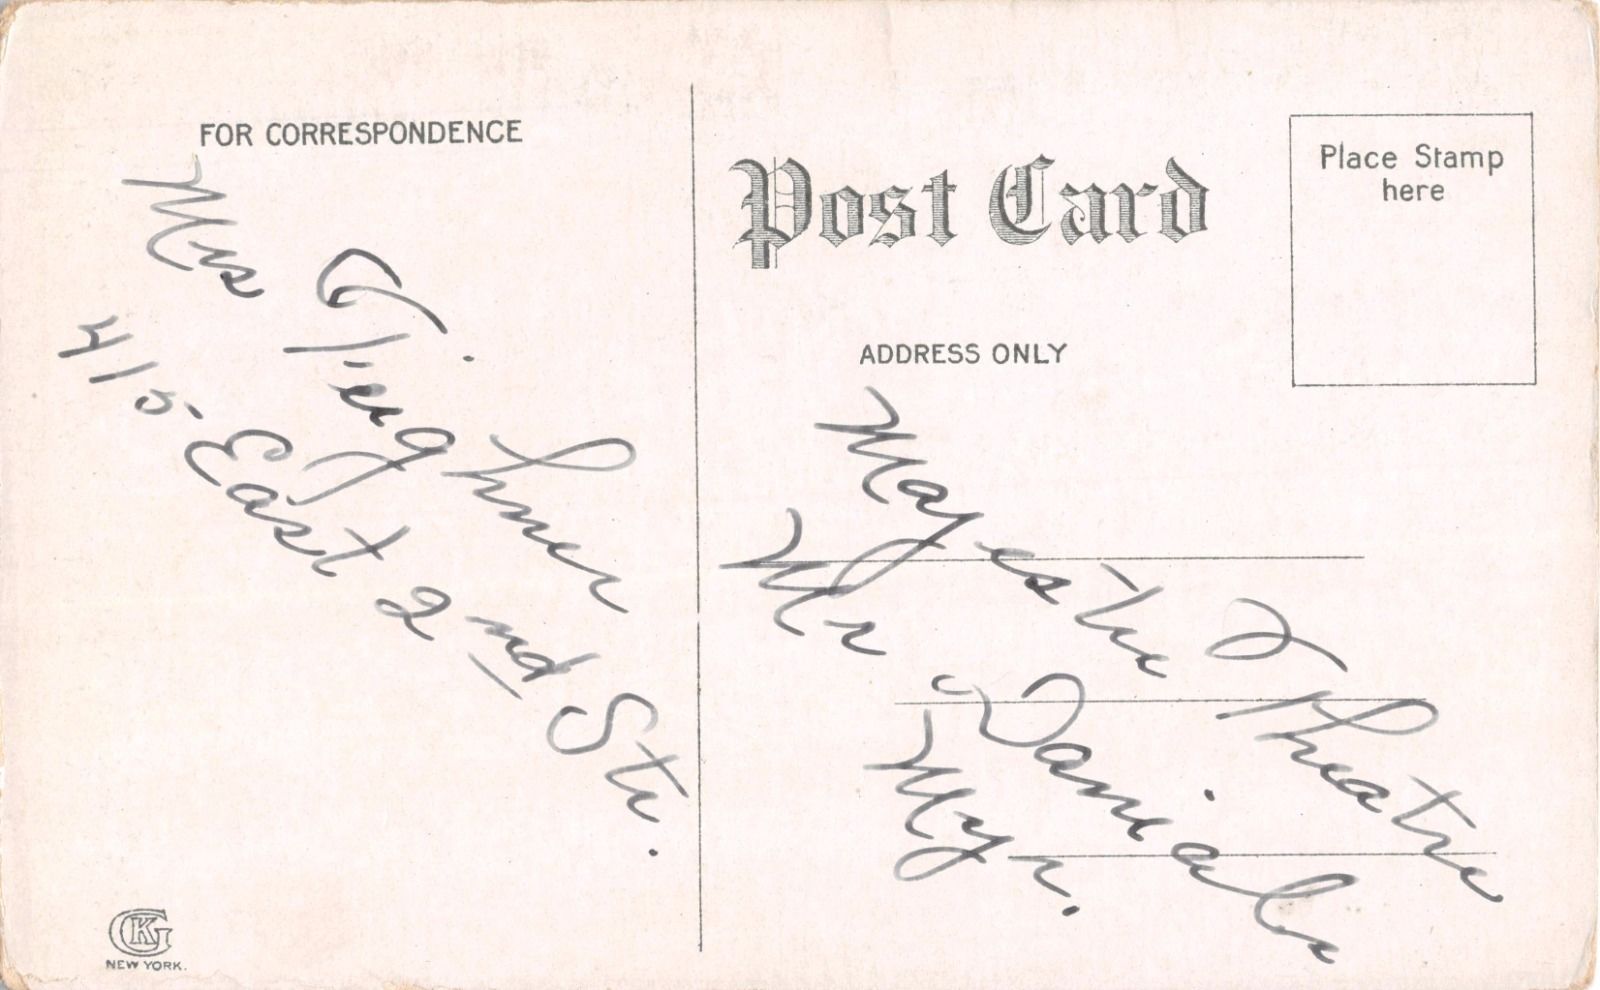 FOR CORRESPONDENCE
Mrs Tieghner
415 East 2nd St.
Post Card
Place Stamp
here
ADDRESS ONLY
Majestic Theatre
Mr Daniels
Mgr.
GK
NEW YORK.